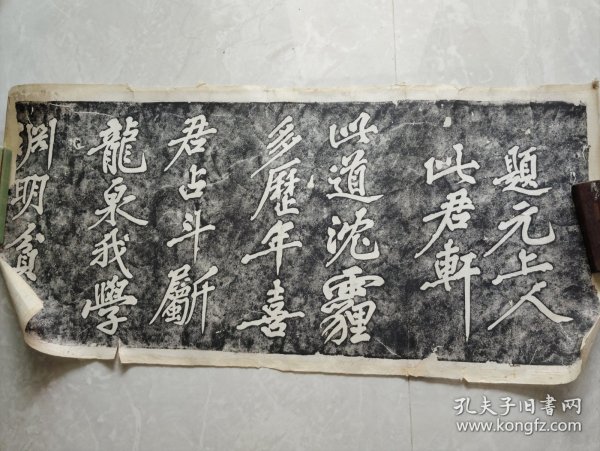 題元上人
此君軒
此道沈霾
多歷年喜
君占斗斸
龍泉我學
渊明貧
孔夫子旧書网
www.kongfz.com